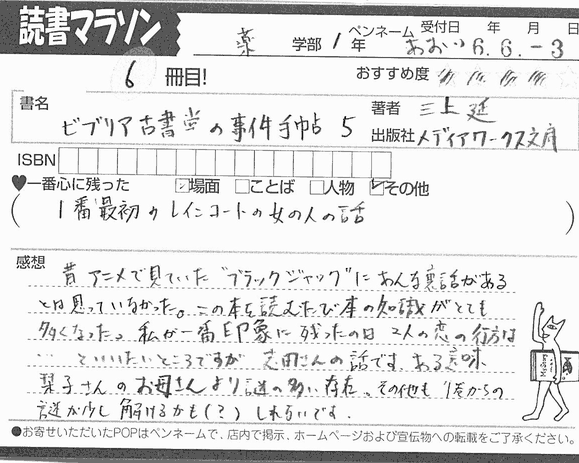 読書マラソン
薬 学部 1 年 ペンネーム あおい 受付日 年 月 日 6.6.-3
6 冊目! おすすめ度
書名 ビブリア古書堂の事件手帖 5
著者 三上延
出版社 メディアワークス文庫
ISBN
♥一番心に残った ☑場面 □ことば □人物 ☑その他
(1番最初のレインコートの女の人の話)
感想
昔アニメで見ていた"ブラックジャック"にあんな裏話がある
とは思っていなかった。この本を読むたび本の知識がとても
多くなった。私が一番印象に残ったのは2人の恋の行方は
… といいたいところですが 志田さんの話です。ある意味
栞子さんのお母さんより謎の多い存在。その他も 1巻からの
謎が少し解けるかも(?)しれないです。
●お寄せいただいたPOPはペンネームで、店内で掲示、ホームページおよび宣伝物への転載をご了承ください。